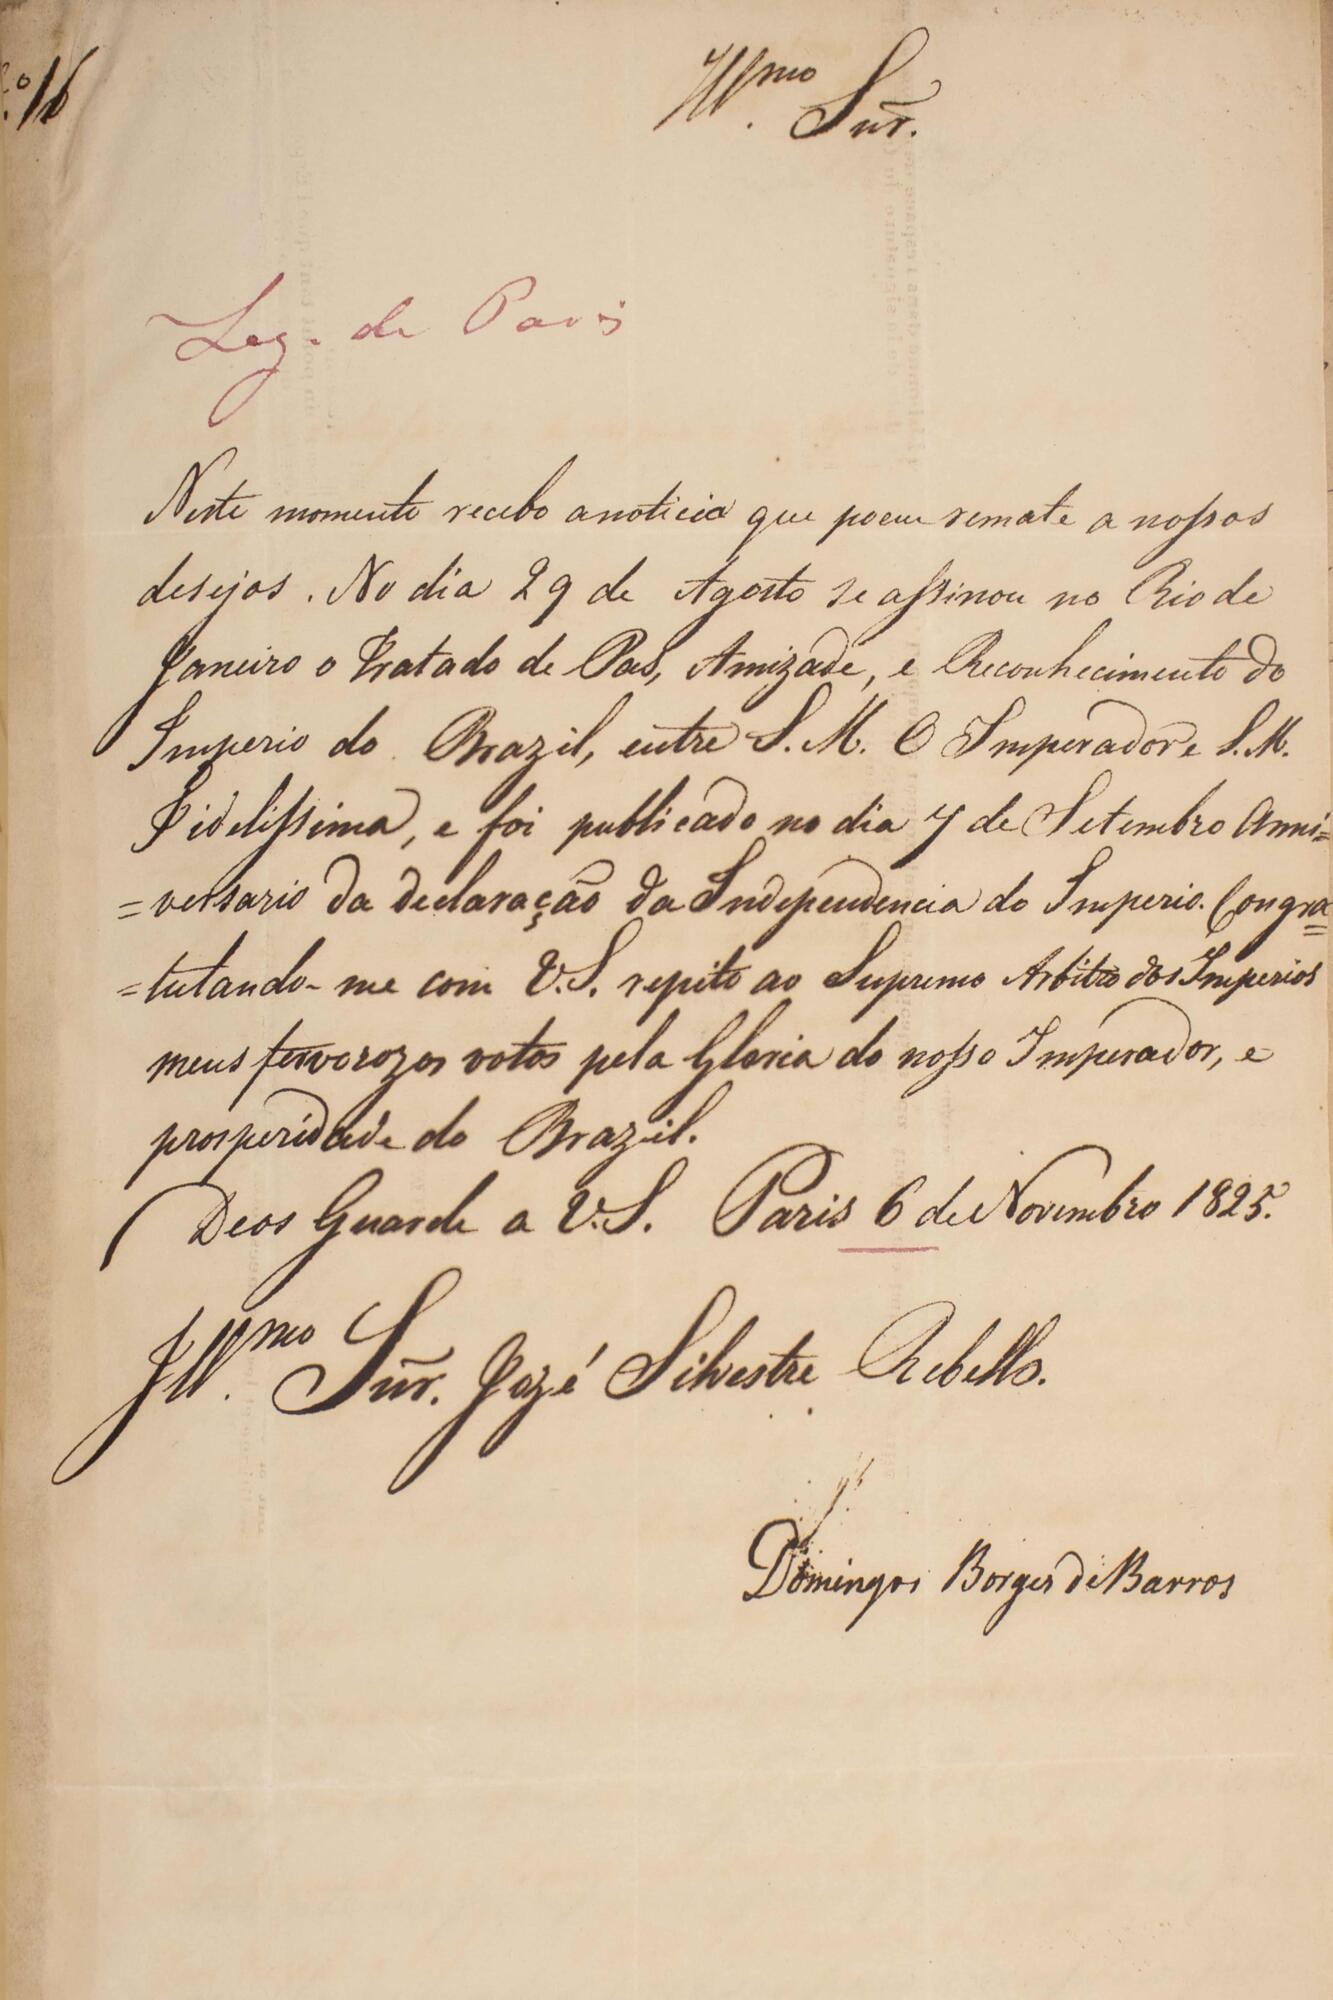 Nº 16
Illmo. Sñr.
Leg. de Paris
Neste momento recebo a noticia que poem remate a nossos
desejos. No dia 29 de Agosto se assinou no Rio de
Janeiro o Tratado de Pas, Amizade, e Reconhecimento do
Imperio do Brazil, entre S. M. O Imperador e S. M.
Fidelissima, e foi publicado no dia 7 de Setembro Anni=
=versario da declaração da Independencia do Imperio. Congra=
=tulando-me com V. S. repito ao Supremo Arbitro dos Imperios
meus fervorozos votos pela Gloria do nosso Imperador, e
prosperidade do Brazil.
Deos Guarde a V. S. Paris 6 de Novembro 1825.
Illmo. Sñr. Jozé Silvestre Rebello.
Domingos Borges de Barros